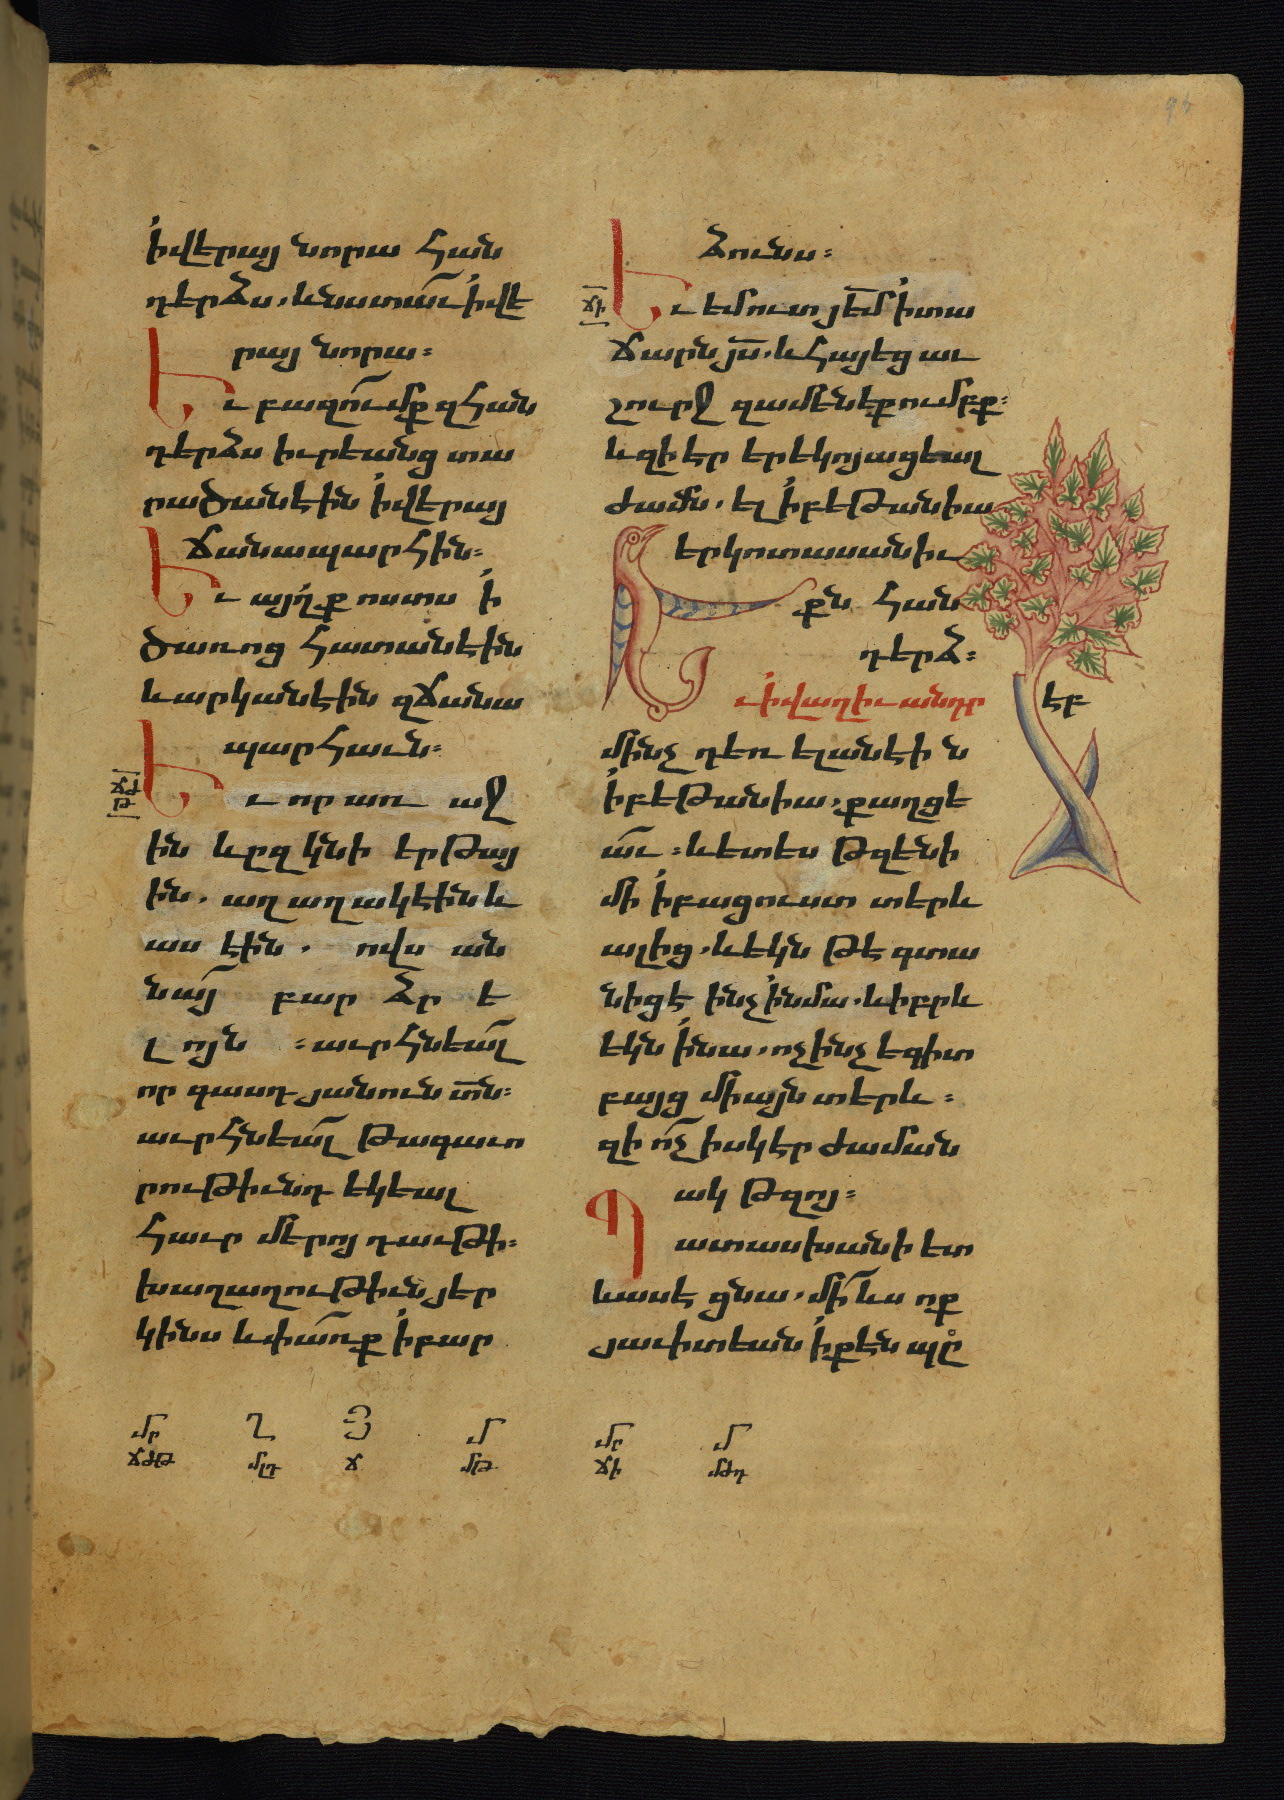 ի վերայ նորա հան
դերձս. և նստաւ ի վե
րայ նորա։
Եւ բազումք զհան
դերձս իւրեանց տա
րածանէին ի վերայ
ճանապարհին։
Եւ այլք ոստս ի
ծառոց հատանէին
և արկանէին զճանա
պարհաւն։
ճժթ
Եւ որ առ աջ
ին և որ զկնի երթայ
ին. աղաղակէին և
աս էին. ովս ան
նայ բար ձր ե
լոյն ։ աւրհնեալ
որ գասդ յանուն տն։
աւրհնեալ թագաւո
րութիւնդ եկեալ
հաւր մերոյ դաւթի։
խաղաղութիւն յեր
կինս և փառք ի բար
ձունս։
ճի
Եւ եմուտ յեմ ի տա
ճարն յս. և հայեցաւ
շուրջ զամենեքումբք։
և զի էր երեկոյացեալ
ժամն. ել ի բեթանիա
երկոտասանիւ
քն հան
դերձ։
Եւ ի վաղիւ անդր էբ
մինչ դեռ ելանէին
ի բեթանիա. քաղցե
աւ։ և ետես թզենի
մի ի բացուստ տերև
ալից. և եկն թե գտա
նիցէ ինչ ի նմա. և իբրև
եկն ի նա. ոչ ինչ եգիտ
բայց միայն տերև։
զի ոչ իսկ էր ժաման
ակ թզոյ։
Պատասխանի ետ
և ասէ ցնա. մի ևս ոք
յաւիտեան ի քէն պը
մր ղ յ մ մր մ
ճժթ մլդ ճ մթ ճի մթդ